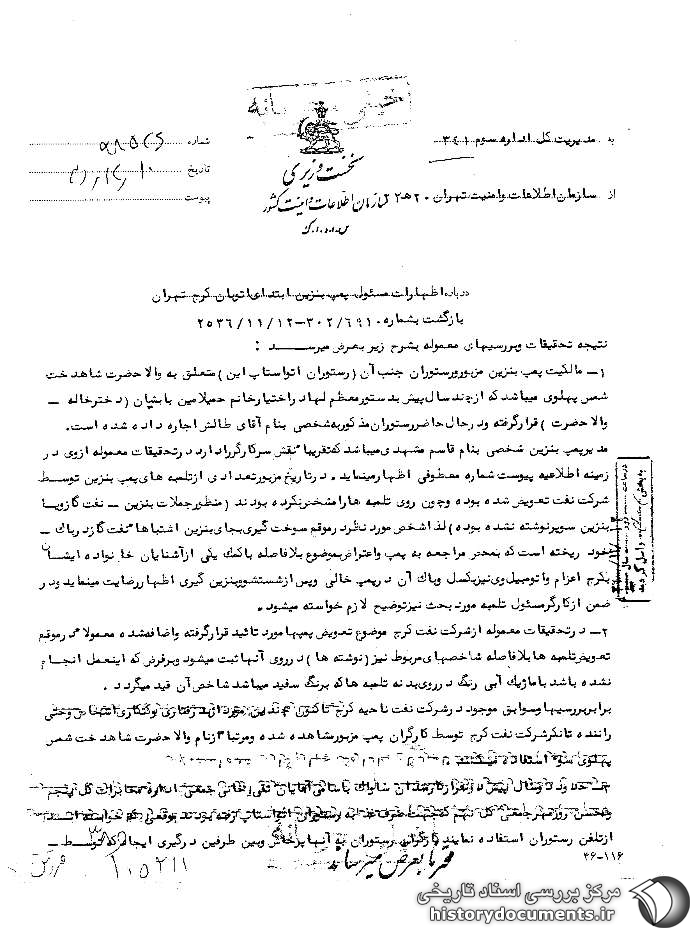 خیلی محرمانه
به مدیریت کل اداره سوم ۳۴۱
شماره
تاریخ
پیوست
از سازمان اطلاعات وامنیت تهران ۲۰ هـ ۲
نخست وزیری
سازمان اطلاعات و امنیت کشور
س.ا.و.ا.ک
درباره اظهارات مسئول پمپ بنزین ابتدای اتوبان کرج تهران
بازگشت بشماره ۳۰۲/۶۹۱۰-۲۵۳۶/۱۱/۱۲
نتیجه تحقیقات وبررسیهای معموله بشرح زیر بعرض میرسد :
۱- مالکیت پمپ بنزین مزبور ورستوران جنب آن (رستوران اتواستاپ این) متعلق به والاحضرت شاهدخت
شمس پهلوی میباشد که از چند سال پیش بدستور معظم لها در اختیار خانم حمیلا مین باینیان (دختر خاله -
والاحضرت) قرار گرفته ودر حال حاضر رستوران مذکور به شخصی بنام آقای طالش اجاره داده شده است.
مدیر پمپ بنزین شخصی بنام قاسم مشهدی میباشد که تقریبا" نقش سرکارگر را دارد در تحقیقات معموله ازوی در
زمینه اطلاعیه پیوست شماره معطوفی اظهار مینماید. در تاریخ مزبور تعدادی از تلمبه های پمپ بنزین توسط
شرکت نفت تعویض شده بوده وچون روی تلمبه ها را مشخص نکرده بودند (منظور جملات بنزین - نفت گاز ویا
بنزین سوپر نوشته نشده بوده) لذا شخص مورد نظر در موقع سوخت گیری بجای بنزین اشتباها" نفت گاز در باک -
خود ریخته است که بمحض مراجعه به پمپ واعتراض بموضوع بلافاصله باکمک یکی از آشنایان خانواده ایشان
بکرج اعزام واتومبیل وی نیز بکسل وباک آن در پمپ خالی وپس از شستشو وبنزین گیری اظهار رضایت مینماید ودر
ضمن از کارگر مسئول تلمبه مورد بحث نیز توضیح لازم خواسته میشود.
۲- در تحقیقات معموله از شرکت نفت کرج موضوع تعویض پمپها مورد تائید قرار گرفته واضافه شده معمولا" در موقع
تعویض تلمبه ها بلافاصله شاخصهای مربوط نیز (نوشته ها) در روی آنها ثبت میشود وبرفرض که اینعمل انجام
نشده باشد با ماژیک آبی رنگ در روی بدنه تلمبه ها که برنگ سفید میباشد شاخص آن قید میگردد.
برابر بررسیها وسوابق موجود در شرکت نفت ناحیه کرج تاکنون چندین مورد از بد رفتاری وکتکاری اشخاص وحتی
راننده تانکر شرکت نفت کرج توسط کارگران پمپ مزبور مشاهده شده ومرتبا" از نام والاحضرت شاهدخت شمس
پهلوی سوء استفاده میکنند
حدود دو سال پیش دو نفر از کارمندان ساواک باسامی آقایان تقی جمعی اداره مخابرات کل پنجم
ومحسن روزمهر جمعی کل نهم که جهت صرف غذا به رستوران اتواستاپ رفته بودند بموقعی که خواسته اند
از تلفن رستوران استفاده نمایند کارگران رستوران به آنها پرخاش وبین طرفین درگیری ایجاد که توسط -
محرمانه
محترما بعرض میرساند
۱۰۵۲۱۱
۳۶-۱۱۶
مرکز بررسی اسناد تاریخی
historydocuments.ir